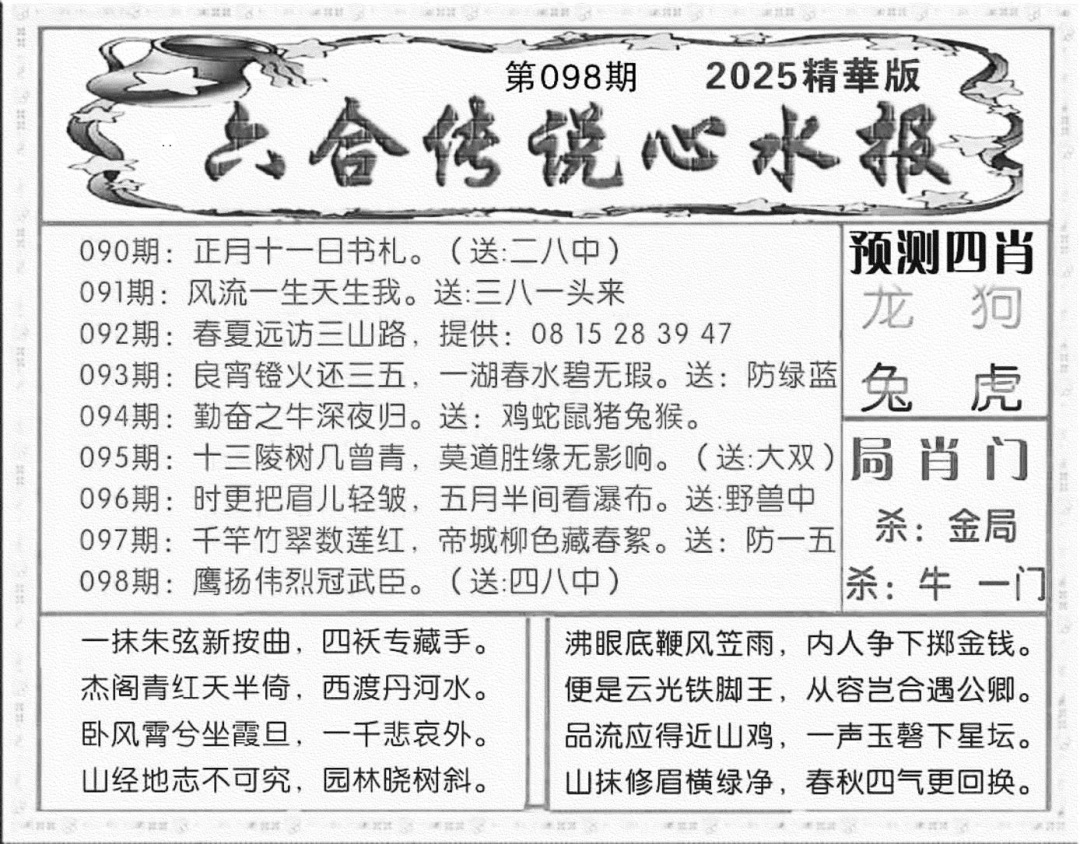 第098期 2025精華版
六合传说心水报
090期：正月十一日书札。（送:二八中）
091期：风流一生天生我。送:三八一头来
092期：春夏远访三山路，提供：08 15 28 39 47
093期：良宵镫火还三五，一湖春水碧无瑕。送：防绿蓝
094期：勤奋之牛深夜归。送：鸡蛇鼠猪兔猴。
095期：十三陵树几曾青，莫道胜缘无影响。（送:大双）
096期：时更把眉儿轻皱，五月半间看瀑布。送:野兽中
097期：千竿竹翠数莲红，帝城柳色藏春絮。送：防一五
098期：鹰扬伟烈冠武臣。（送:四八中）
预测四肖
龙 狗
兔 虎
局肖门
杀：金局
杀：牛 一门
一抹朱弦新按曲，四袄专藏手。
杰阁青红天半倚，西渡丹河水。
卧风霄兮坐霞旦，一千悲哀外。
山经地志不可究，园林晓树斜。
沸眼底鞭风笠雨，内人争下掷金钱。
便是云光铁脚王，从容岂合遇公卿。
品流应得近山鸡，一声玉磬下星坛。
山抹修眉横绿净，春秋四气更回换。